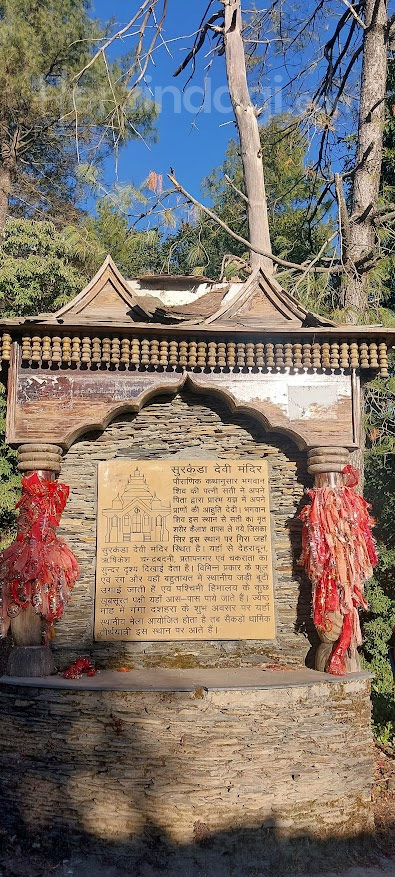 सुरकंडा देवी मंदिर
पौराणिक कथानुसार भगवान
शिव की पत्नी सती ने अपने
पिता द्वारा प्रारंभ यज्ञ में अपने
प्राणों की आहुति देदी। भगवान
शिव इस स्थान से सती का मृत
शरीर कैलाश वापस ले गये जिसका
सिर इस स्थान पर गिरा जहाँ
सुरकंडा देवी मंदिर स्थित है। यहाँ से देहरादून,
ऋषिकेश चन्द्रबदनी, प्रतापनगर एवं चकराता का
सुन्दर दृश्य दिखाई देता है। विभिन्न प्रकार के फूल
एवं रंग और यहाँ बहुतायत में स्थानीय जड़ी बूटी
उगाई जाती हैं एवं पश्चिमी हिमालय के कुछ
खुबसुरत पक्षी यहाँ आस-पास पाये जाते हैं। ज्येष्ठ
माह में गंगा दशहरा के शुभ अवसर पर यहाँ
स्थानीय मेला आयोजित होता है तब सैकड़ों धार्मिक
तीर्थयात्री इस स्थान पर आते हैं।